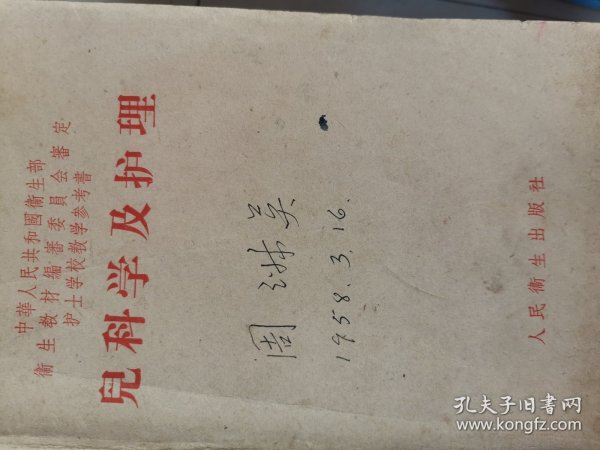 中華人民共和國衞生部
衞生教材編審委員会審定
护士学校教学参考書
兒科学及护理
周
1958.3.16.
人民衞生出版社
孔夫子旧书网
www.kongfz.com